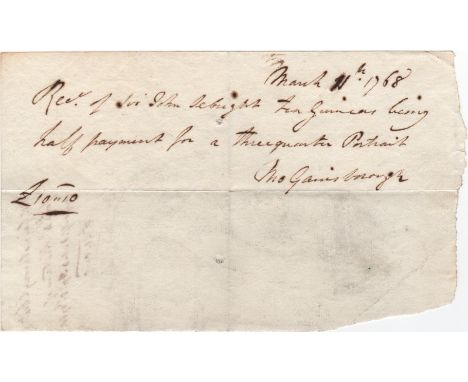 March 11th 1768
Recd. of Sir John Sebright Ten Guineas being
half payment for a threequarter Portrait
Tho Gainsborough
£10"10